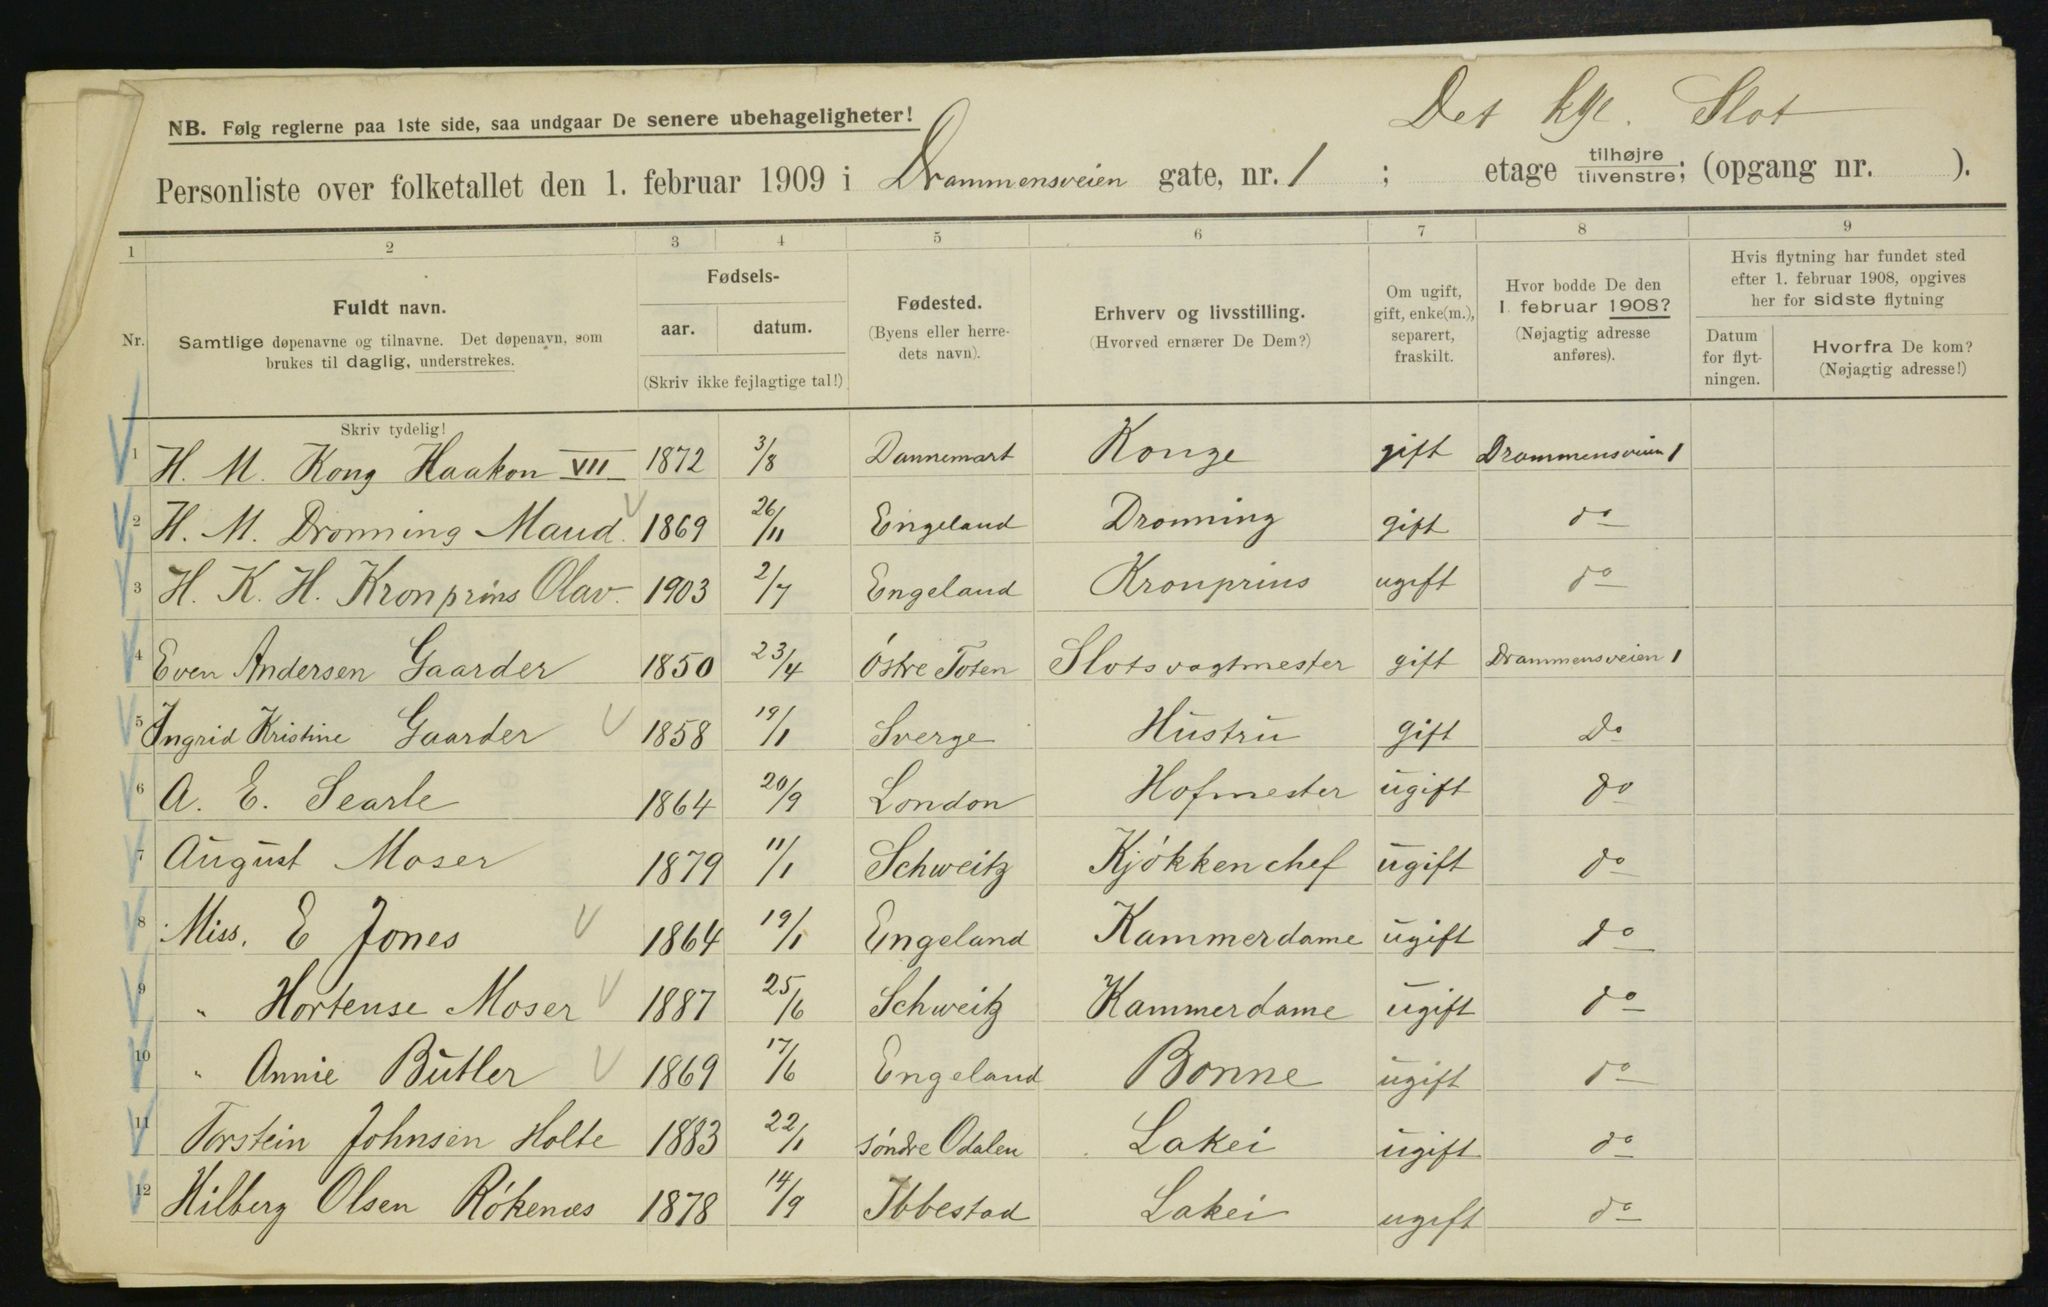 Det kgl. Slot
NB. Følg reglerne paa 1ste side, saa undgaar De senere ubehageligheter!
Personliste over folketallet den 1. februar 1909 i Drammensveien gate, nr. 1 ; etage tilhøjre tilvenstre; (opgang nr. ).
1 2 3 4 5 6 7 8 9
Nr.
Fuldt navn.
Samtlige døpenavne og tilnavne. Det døpenavn, som
brukes til daglig, understrekes.
Skriv tydelig!
Fødsels-
aar. datum.
(Skriv ikke fejlagtige tal!)
Fødested.
(Byens eller herre-
dets navn).
Erhverv og livsstilling.
(Hvorved ernærer De Dem?)
Om ugift,
gift, enke(m.),
separert,
fraskilt.
Hvor bodde De den
1. februar 1908?
(Nøjagtig adresse
anføres).
Hvis flytning har fundet sted
efter 1. februar 1908, opgives
her for sidste flytning
Datum
for flyt-
ningen.
Hvorfra De kom?
(Nøjagtig adresse!)
1 H. M. Kong Haakon VII 1872 3/8 Dannemark Konge gift Drammensveien 1
2 H. M. Dronning Maud. 1869 26/11 Engeland Dronning gift do
3 H. K. H. Kronprins Olav. 1903 2/7 Engeland Kronprins ugift do
4 Even Andersen Gaarder 1850 23/4 Östre Toten Slotsvagtmester gift Drammensveien 1
5 Ingrid Kristine Gaarder 1858 19/1 Sverge Hustru gift Do
6 A. E. Searle 1864 20/9 London Hofmester ugift do
7 August Moser 1879 11/1 Schweitz Kjøkkenchef ugift do
8 Miss. E Jones 1864 19/1 Engeland Kammerdame ugift do
9 " Hortense Moser 1887 25/6 Schweitz Kammerdame ugift do
10 " Annie Butler 1869 17/6 Engeland Bonne ugift do
11 Torstein Johnsen Holte 1883 22/1 söndre Odalen Lakei ugift do
12 Hilberg Olsen Rökenæs 1878 14/9 Ibbestad Lakei ugift do